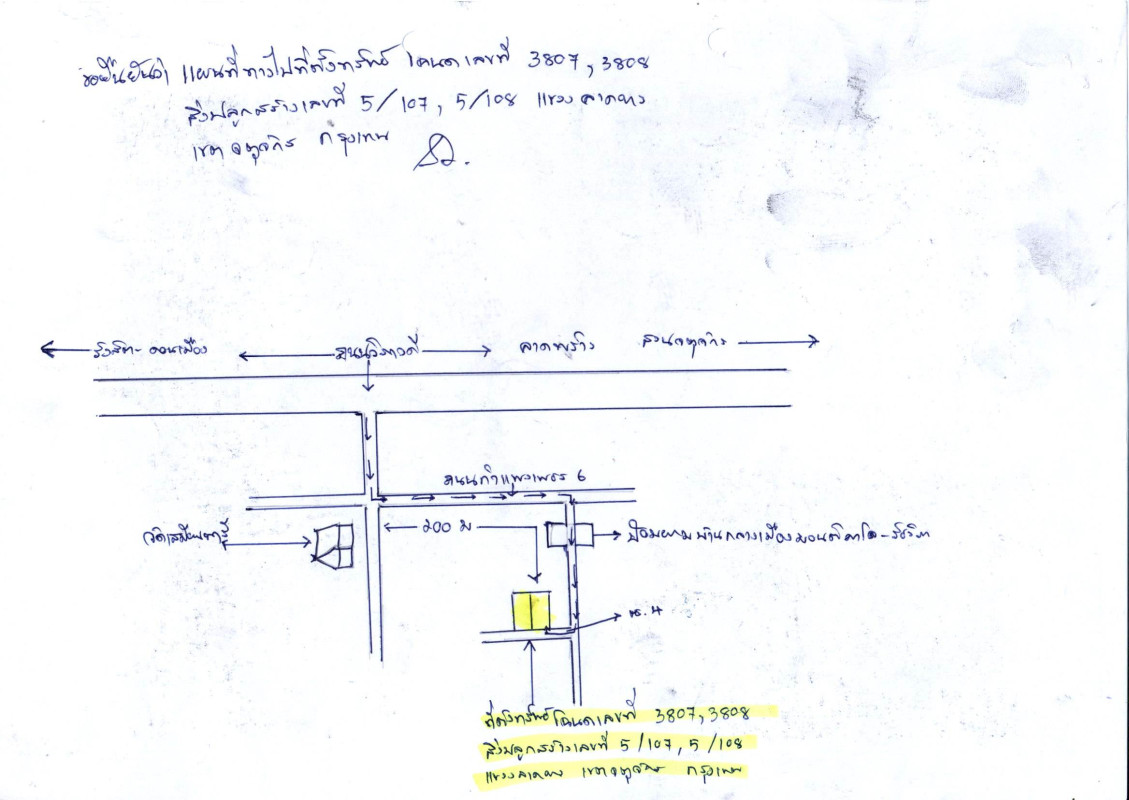 ขอยืนยันว่า แผนที่ทางไปที่ตั้งทรัพย์ โฉนดเลขที่ 3807, 3808
สิ่งปลูกสร้างเลขที่ 5/107, 5/108 แขวงลาดยาว
เขตจตุจักร กรุงเทพ
รังสิต - ดอนเมือง
ถนนวิภาวดี
ลาดพร้าว
สวนจตุจักร
ถนนกำแพงเพชร 6
วัดเสมียนนารี
200 ม
ป้อมยามบ้านกลางเมืองมอนติคาโล-รัชวิภา
ซ.4
ที่ตั้งทรัพย์โฉนดเลขที่ 3807, 3808
สิ่งปลูกสร้างเลขที่ 5/107, 5/108
แขวงลาดยาว เขตจตุจักร กรุงเทพ